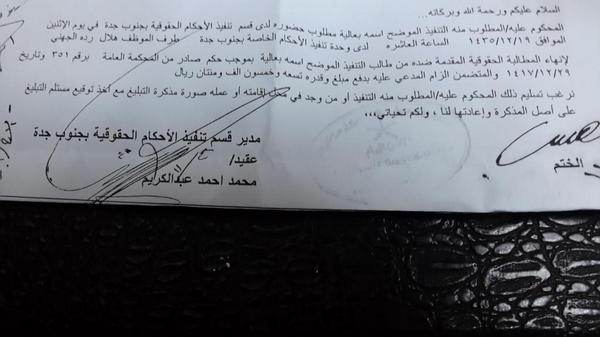 السلام عليكم ورحمة الله وبركاته...
المحكوم عليه/المطلوب منه التنفيذ الموضح اسمه بعالية مطلوب حضوره لدى قسم تنفيذ الأحكام الحقوقية بجنوب جدة في يوم الاثنين
الموافق ١٤٣٥/١٢/١٩ الساعة العاشره لدى وحدة تنفيذ الأحكام الخاصة بجنوب جدة طرف الموظف هلال رده الجهني
لإنهاء المطالبة الحقوقية المقدمة ضده من طالب التنفيذ الموضح اسمه بعالية بموجب حكم صادر من المحكمة العامة برقم ٣٥١ وتاريخ
١٤١٧/١٢/٢٩ والمتضمن الزام المدعى عليه بدفع مبلغ وقدره تسعه وخمسون الف ومئتان ريال
نرغب تسليم ذلك المحكوم عليه/المطلوب منه التنفيذ او من وجد في محل إقامته أو عمله صورة مذكرة التبليغ مع أخذ توقيع مستلم التبليغ
على أصل المذكرة وإعادتها لنا ، ولكم تحياتي،،،
مدير قسم تنفيذ الأحكام الحقوقية بجنوب جدة
الختم
عقيد/
محمد احمد عبدالكريم